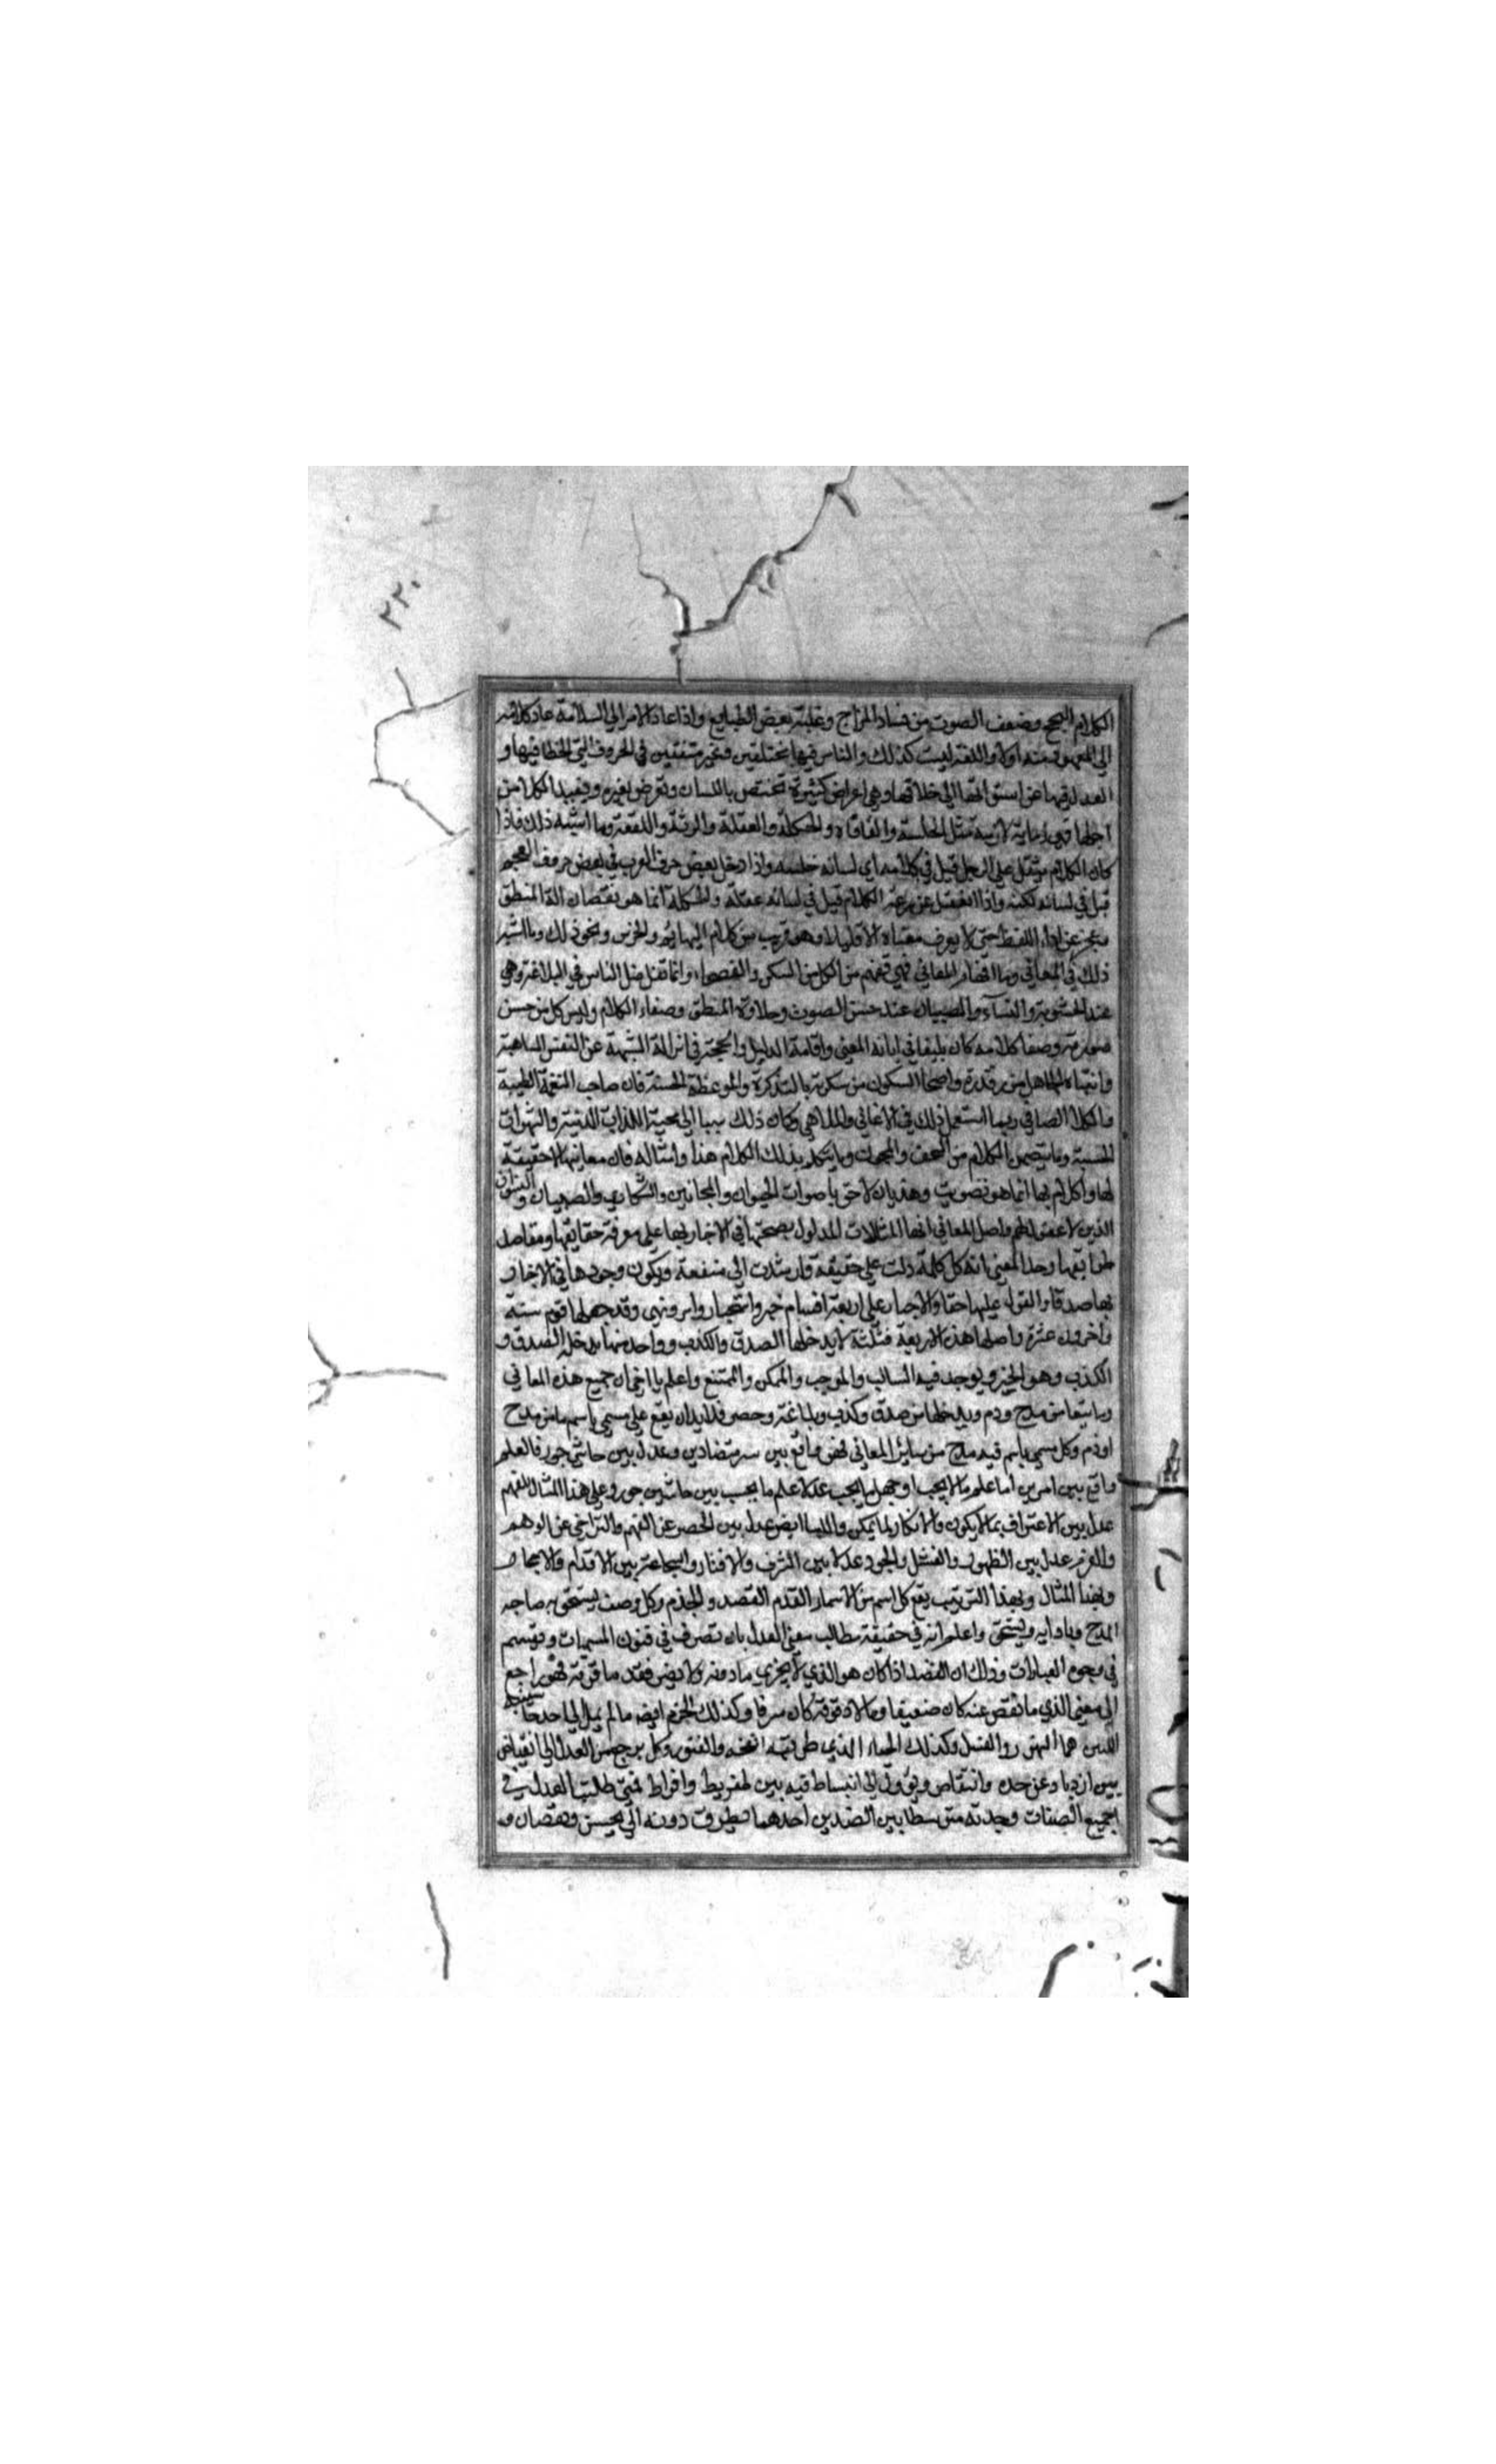 ٢٢٠
الكلام البحح وضعف الصوت من فساد المزاج وغلبة بعض الطبايع واذا عاد الامر الى السلامة عاد كلامه
الى المعهود منه اولا واللغة ليست كذلك والناس فيها مختلفين وغير متفقين في الحروف التي الخطا فيها و
العدل بها عن استوائها الى خلافها وهي اعراض كثيرة تختص باللسان وتعرض لغيره ويفسد الكلام من
اجلها وهي زمانة لازمة مثل الحلسة والفافاه والحكلة والعقلة والرثة واللثغة وما اشبه ذلك فاذا
كان الكلام يثقل على الرجل قيل في كلامه اي لسانه حلسه واذا دخل بعض حرف العرب في بعض حروف العجم
قيل في لسانه لكنه واذا انعقل عن سرعة الكلام قيل في لسانه عقلة والحكلة انما هو نقصان الة المنطق
وعجز عن اداء اللفظ حتى لا يعرف معناه الا قليلا وهو قريب من كلام البهايم والخرس ونحو ذلك وما اشبه
ذلك في المعاني وما افهام المعاني فهي تفهم من الكل من السكن والفصحاء وانما تفاضل الناس في البلاغة وهي
عند الحشوية والنساء والصبيان عند حسن الصوت وحلاوة المنطق وصفاء الكلام وليس كل من حسن
صوته وصفا كلامه كان بليغا في ابانة المعنى واقامة الدليل والحجة في ازالة الشبهة عن النفس الساهية
وانتباه الجاهل من رقدته واصحا السكون من سكرته بالتذكرة والموعظة الحسنة فان صاحب النغمة الطيبة
والكلام الصافي ربما استعمل ذلك في الاغاني والملاهي وكان ذلك سببا الى محبة اللذات الدنية والشهوات
الحسية وما يتضمن الكلام من السخف والمجون وما يتكلم بذلك الكلام هذا وامثاله فان معانيها لا حقيقة
لها والكلام بها انما هو تصويت وهذيان لاحق باصوات الحيوان والمجانين والسكارى والصبيان والنسوان
الذين لا عقل لهم واصل المعاني انها المقالات المدلول بصحتها في الاخبار بها على معرفة حقايقها ومقاصد
طرايقها وحد المعنى انه كل كلمة دلت على حقيقة وارشدت الى منفعة ويكون وجودها في الاخبار
بها صدقا والقول عليها حقا والاخبار على اربعة اقسام خبر واستخبار وامر ونهي وقد جعلها قوم ستة
واخرون عشرة واصلها هذه الاربعة فثلثة لا يدخلها الصدق والكذب وواحد منها يدخله الصدق و
الكذب وهو الخبر ويوجد فيه السالب والموجب والممكن والممتنع واعلم يا اخي ان جميع هذه المعاني
وما يتبعها من مدح وذم ويدخلها من صدق وكذب وبلاغة وحصر فلا بد ان يقع على مسمى باسم ما من مدح
او ذم وكل مسمى باسم فيه مدح من ساير المعاني فهو واقع بين متضادين وعدل بين حاشتي جور فالعلم
واقع بين امرين اما علم ما لا يجب او جهل ما يجب عدلا علم ما يجب بين حاشتين جور وعلى هذا المثال الفهم
عدل بين الاعتراف بما لا يكون والانكار لما يمكن والبيان ايضا عدل بين الحصر عن الفهم والتراخي عن الوهم
والعزم عدل بين الظهور والفشل والجود عدلا بين السرف والاقتار والشجاعة بين الاقدام والاحجام
وبهذا المثال وبهذا الترتيب يقع كل اسم من الاسماء القدم القصد والحزم وكل وصف يستحق به صاحبه
المدح وباداه ويستحق واعلم انه في حقيقة مطالب معنى العدل بان تصرف في فنون المسميات وتقسم
في وجوه العبارات وذلك ان القصد اذا كان هو الذي لا يجزي ما دونه ولا يضر فقد ما فوقه فهو راجع
الى معنى الذي ما نقص عنه كان ضعيفا وما لاد فوقه كان سرفا وكذلك الحزم ايضا ما لم يمل الى احد حاشيتيه
اللتين هما التهور والفشل وكذلك الحياء الذي طرفيه القحة والفتور وكل يرجع من العدل الى انقباض
بين ازدياد عن حده وانتقاص ويؤول الى انبساط فيه بين تفريط وافراط فمتى طلبت العدل في
جميع الصفات وجدته متوسطا بين الضدين احدهما يطرق دونه الى بحس ونقصان و